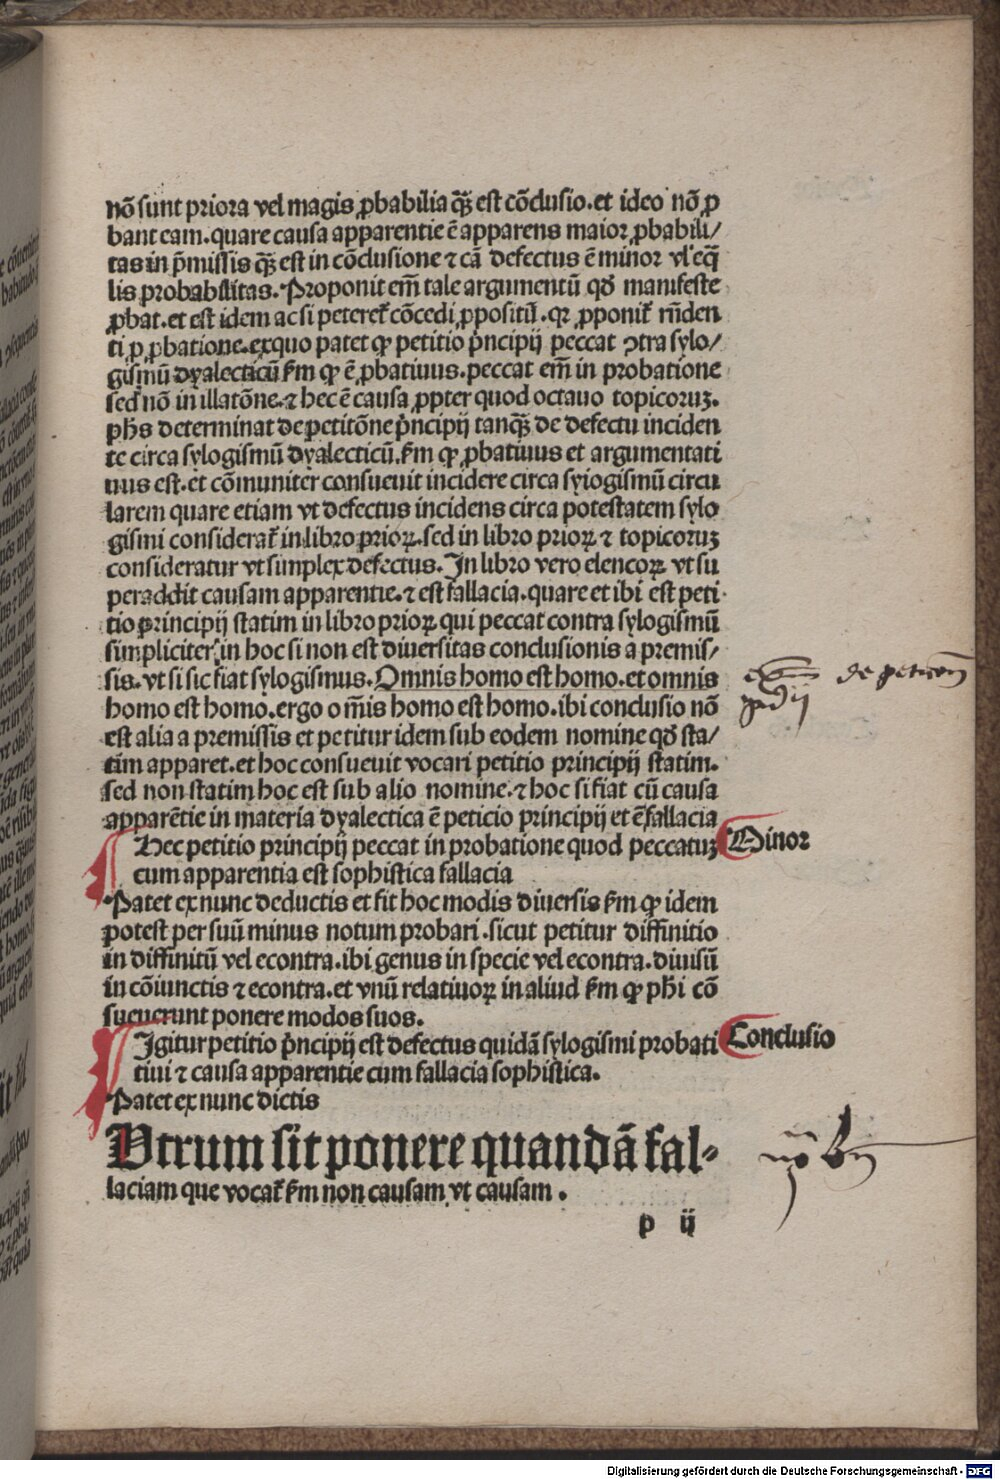 nō sunt priora vel magis ꝓbabilia qȝ̄ est cōclusio. et ideo nō ꝓ
bant eam. quare causa apparentie ē apparens maior ꝓbabili/
tas in p̄missis qȝ̄ est in cōclusione ⁊ cā defectus ē minor vl' eq̄
lis probabilitas. Proponit em̄ tale argumentū qd̄ manifeste
ꝓbat. et est idem ac si peteret̄ cōcedi ꝓpositū. qr ꝓponit̄ rn̄den
ti ꝓ ꝓbatione. ex quo patet ꝙ petitio p̄ncipij peccat ꝯtra sylo/
gismū dyalecticū s̄m ꝙ ē ꝓbatiuus. peccat em̄ in probatione
sed nō in illatōne. ⁊ hec ē causa ꝓpter quod octauo topicoruȝ.
ph̄s determinat de petitōne p̄ncipij tanqȝ̄ de defectu inciden
te circa sylogismū dyalecticū. s̄m ꝙ ꝓbatiuus et argumentati
uus est. et cōmuniter consueuit incidere circa sylogismū circu
larem quare etiam vt defectus incidens circa potestatem sylo
gismi considerat̄ in libro prioꝝ. sed in libro prioꝝ ⁊ topicoruȝ
consideratur vt simplex defectus. In libro vero elencoꝝ vt su
peraddit causam apparentie. ⁊ est fallacia. quare et ibi est peti
tio principij statim in libro prioꝝ qui peccat contra sylogismū
simpliciter. in hoc si non est diuersitas conclusionis a premis/
sis. vt si sic fiat sylogismus. Omnis homo est homo. et omnis
homo est homo. ergo om̄is homo est homo. ibi conclusio nō
est alia a premissis et petitur idem sub eodem nomine qd̄ sta/
tim apparet. et hoc consueuit vocari petitio principij statim.
sed non statim hoc est sub alio nomine. ⁊ hoc si fiat cū causa
apparētie in materia dyalectica ē peticio principij et ē fallacia
de peticōn
Hec petitio principij peccat in probatione quod peccatuȝ
cum apparentia est sophistica fallacia
Minor
Patet ex nunc deductis et fit hoc modis diuersis s̄m ꝙ idem
potest per suū minus notum probari. sicut petitur diffinitio
in diffinitū vel econtra. ibi genus in specie vel econtra. diuisū
in cōiunctis ⁊ econtra. et vnū relatiuoꝝ in aliud s̄m ꝙ ph̄i cō
sueuerunt ponere modos suos.
Igitur petitio p̄ncipij est defectus quidā sylogismi probati
tiui ⁊ causa apparentie cum fallacia sophistica.
Conclusio
Patet ex nunc dictis
Vtrum sit ponere quandā fal-
laciam que vocat̄ s̄m non causam vt causam.
p ij
Digitalisierung gefördert durch die Deutsche Forschungsgemeinschaft - DFG